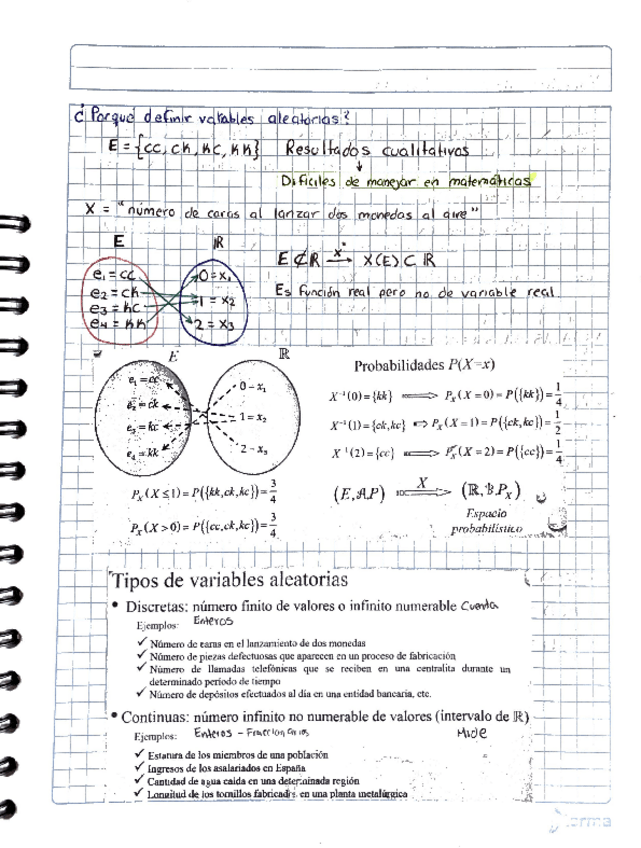 ¿Porqué definir variables aleatorias?
E = {cc, ck, kc, kk} Resultados cualitativos
↓
Dificiles de manejar en matemáticas
X = "número de caras al lanzar dos monedas al aire"
E ℝ
e₁ = cc 0 = x₁
e₂ = ck 1 = x₂
e₃ = kc 2 = x₃
e₄ = kk
E ⊄ ℝ —X→ X(E) ⊂ ℝ
Es función real pero no de variable real
E ℝ
e₁ = cc 0 – x₁
e₂ = ck 1 = x₂
e₃ = kc 2 – x₃
e₄ = kk
Probabilidades P(X=x)
X⁻¹(0) = {kk} ⟹ Pₓ(X = 0) = P({kk}) = 1/4
X⁻¹(1) = {ck, kc} ⟹ Pₓ(X = 1) = P({ck, kc}) = 1/2
X⁻¹(2) = {cc} ⟹ Pₓ(X = 2) = P({cc}) = 1/4
Pₓ(X ≤ 1) = P({kk, ck, kc}) = 3/4
Pₓ(X > 0) = P({cc, ck, kc}) = 3/4
(E, A, P) —X⟹ (ℝ, B, Pₓ)
Espacio
probabilístico
Tipos de variables aleatorias
• Discretas: número finito de valores o infinito numerable Cuenta
Ejemplos: Enteros
✓ Número de caras en el lanzamiento de dos monedas
✓ Número de piezas defectuosas que aparecen en un proceso de fabricación
✓ Número de llamadas telefónicas que se reciben en una centralita durante un
determinado periodo de tiempo
✓ Número de depósitos efectuados al día en una entidad bancaria, etc.
• Continuas: número infinito no numerable de valores (intervalo de ℝ)
Ejemplos: Enteros - Fraccionarios Mide
✓ Estatura de los miembros de una población
✓ Ingresos de los asalariados en España
✓ Cantidad de agua caida en una determinada región
✓ Longitud de los tornillos fabricados en una planta metalúrgica